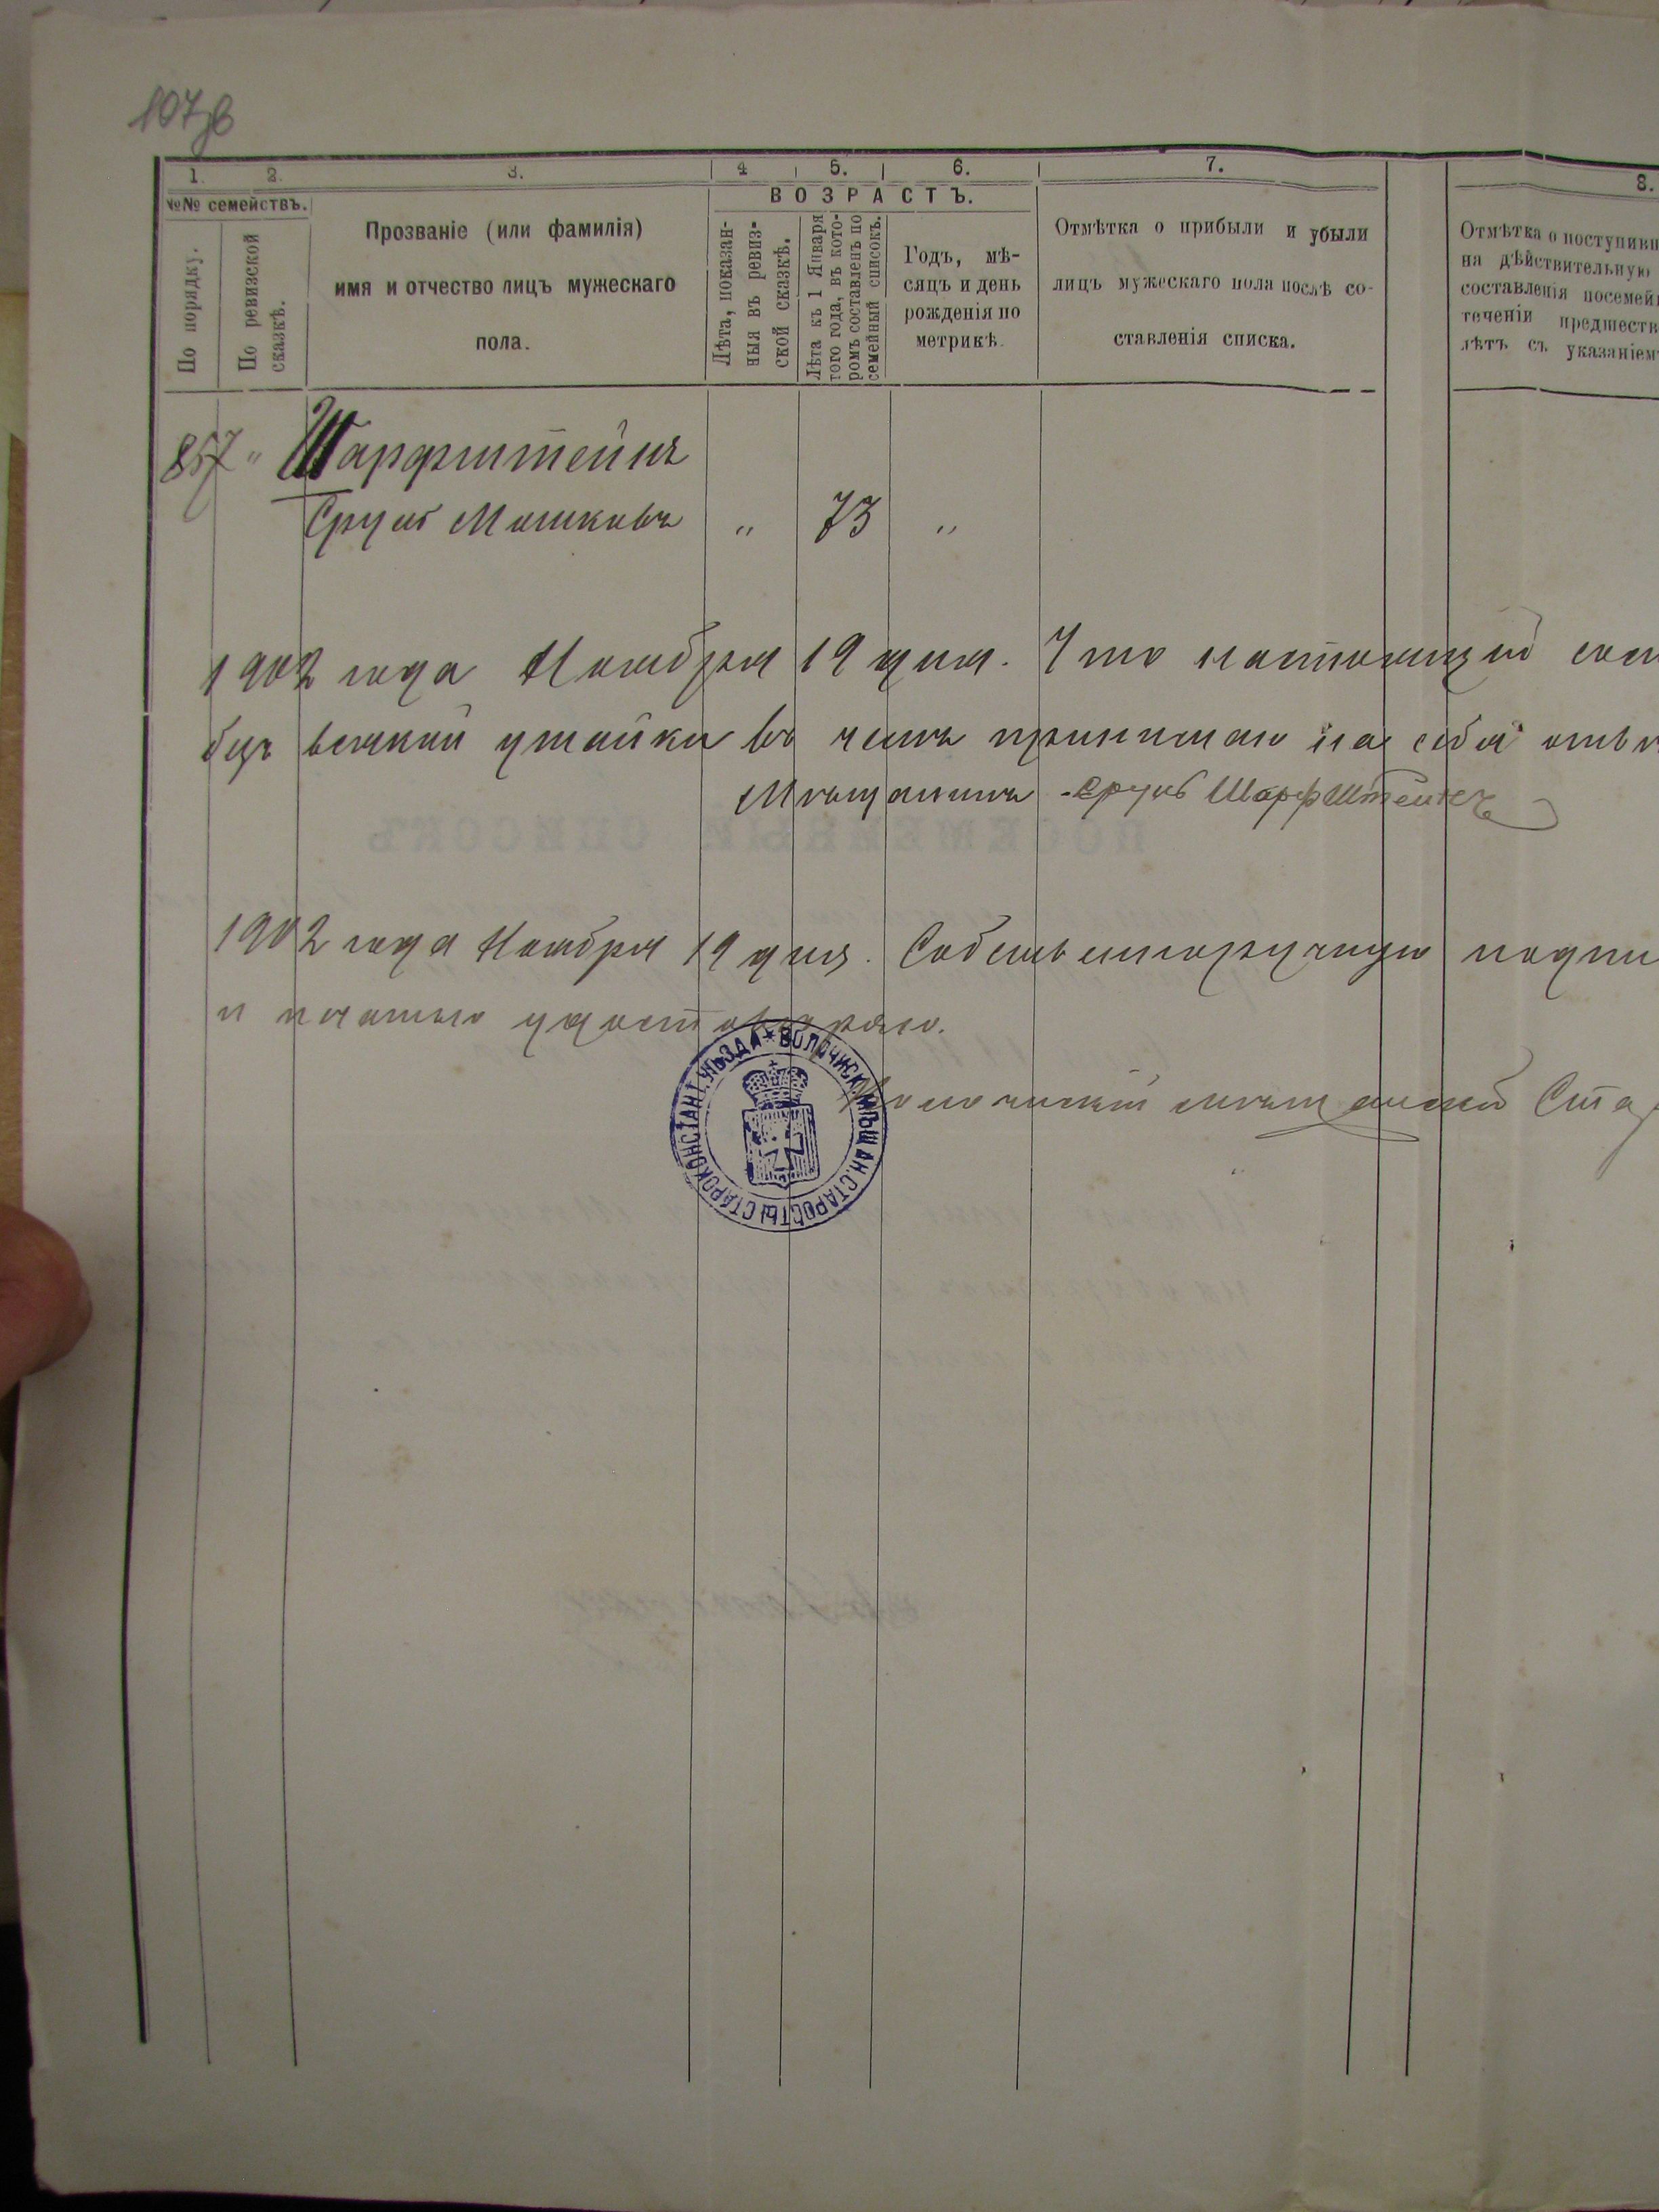 107зв
1. 2. 3. 4 5. 6. 7. 8.
№№ семействъ.
По порядку.
По ревизской сказкѣ.
Прозваніе (или фамилія)
имя и отчество лицъ мужескаго
пола.
ВОЗРАСТЪ.
Лѣта, показан-
ныя въ ревиз-
ской сказкѣ.
Лѣта къ 1 Января
того года, въ кото-
ромъ составленъ по
семейный списокъ.
Годъ, мѣ-
сяцъ и день
рожденія по
метрикѣ.
Отмѣтка о прибыли и убыли
лицъ мужескаго пола послѣ со-
ставленія списка.
Отмѣтка о поступивш
на дѣйствительную
составленія посемей
теченіи предшеств
лѣтъ съ указаніем
857 " Шарфштейнъ
Сруль Мошковъ " 73 "
1902 года Ноября 19 дня. Что настоящій
безъ всякой утайки въ чемъ принимаю на себя
Мѣщанинъ Сруль Шарфштейнъ
1902 года Ноября 19 дня. Собственноручную подпи
и печатью удостовѣряю.
Волочискій мѣщанскій Ста
СТАРОКОНСТАНТ. УѢЗДА * ВОЛОЧИСК. МѢЩАН. СТАРОСТЫ
ПОСЕМЕЙНЫЙ СПИСОКЪ